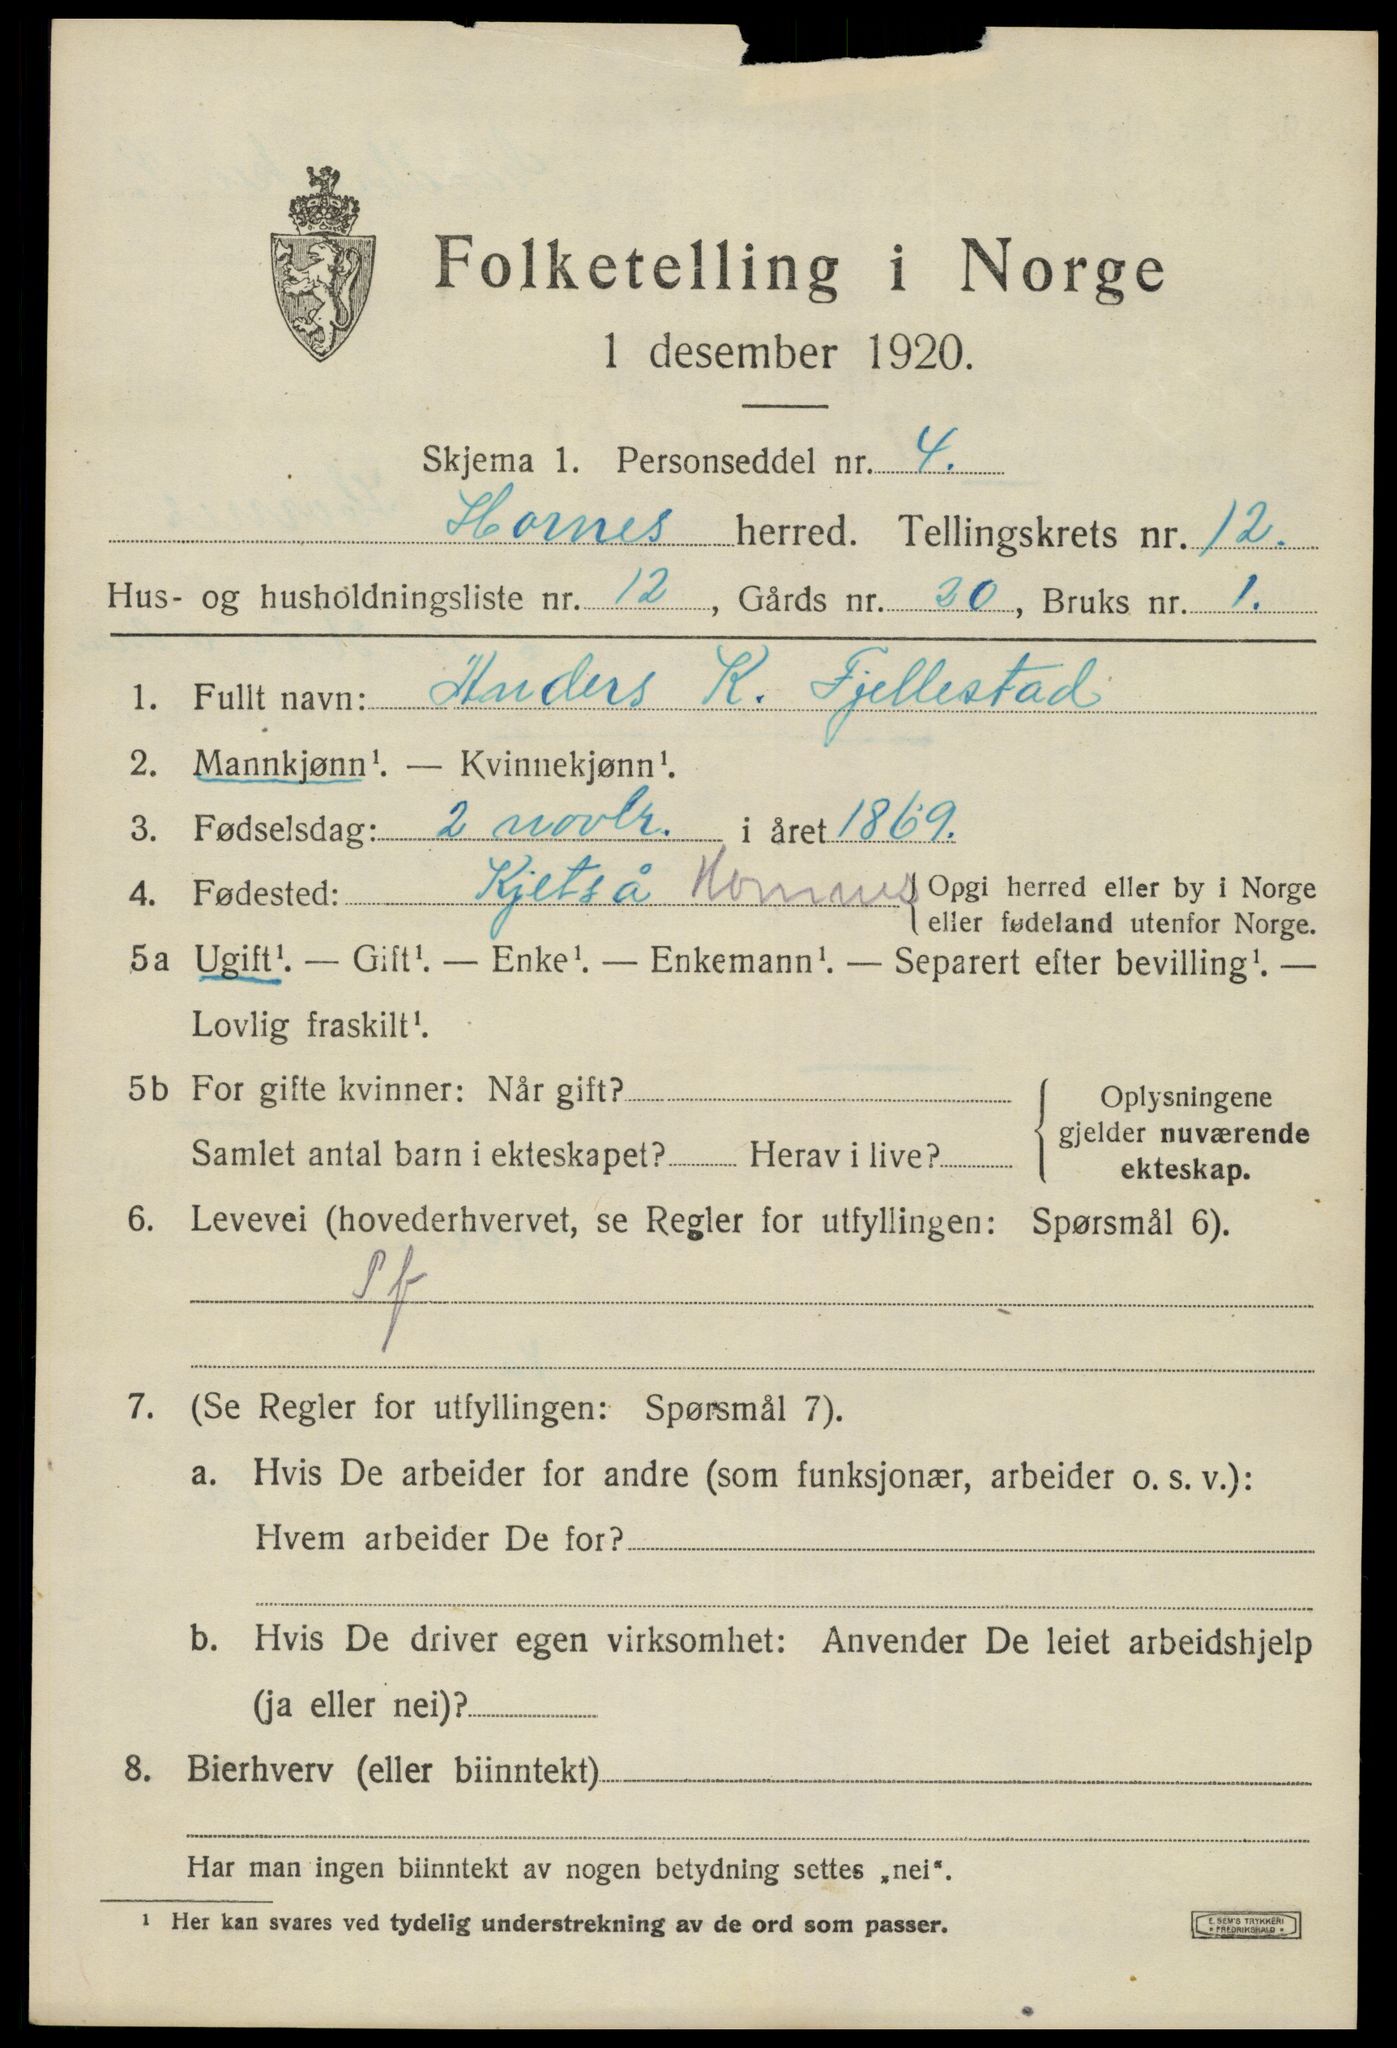 Folketelling i Norge
1 desember 1920.
Skjema 1. Personseddel nr. 4.
Hornes herred. Tellingskrets nr. 12.
Hus- og husholdningsliste nr. 12, Gårds nr. 20, Bruks nr. 1.
1. Fullt navn: Anders K. Fjellestad
2. Mannkjønn¹. — Kvinnekjønn¹.
3. Fødselsdag: 2 novbr. i året 1869.
4. Fødested: Kjetså Hornnes { Opgi herred eller by i Norge
eller fødeland utenfor Norge.
5a Ugift¹. — Gift¹. — Enke¹. — Enkemann¹. — Separert efter bevilling¹. —
Lovlig fraskilt¹.
5b For gifte kvinner: Når gift?
Samlet antal barn i ekteskapet? Herav i live?
{ Oplysningene
gjelder nuværende
ekteskap.
6. Levevei (hovederhvervet, se Regler for utfyllingen: Spørsmål 6).
7. (Se Regler for utfyllingen: Spørsmål 7).
a. Hvis De arbeider for andre (som funksjonær, arbeider o. s. v.):
Hvem arbeider De for?
b. Hvis De driver egen virksomhet: Anvender De leiet arbeidshjelp
(ja eller nei)?
8. Bierhverv (eller biinntekt)
Har man ingen biinntekt av nogen betydning settes „nei“.
¹ Her kan svares ved tydelig understrekning av de ord som passer.
E. SEM'S TRYKKERI
* FREDRIKSHALD *